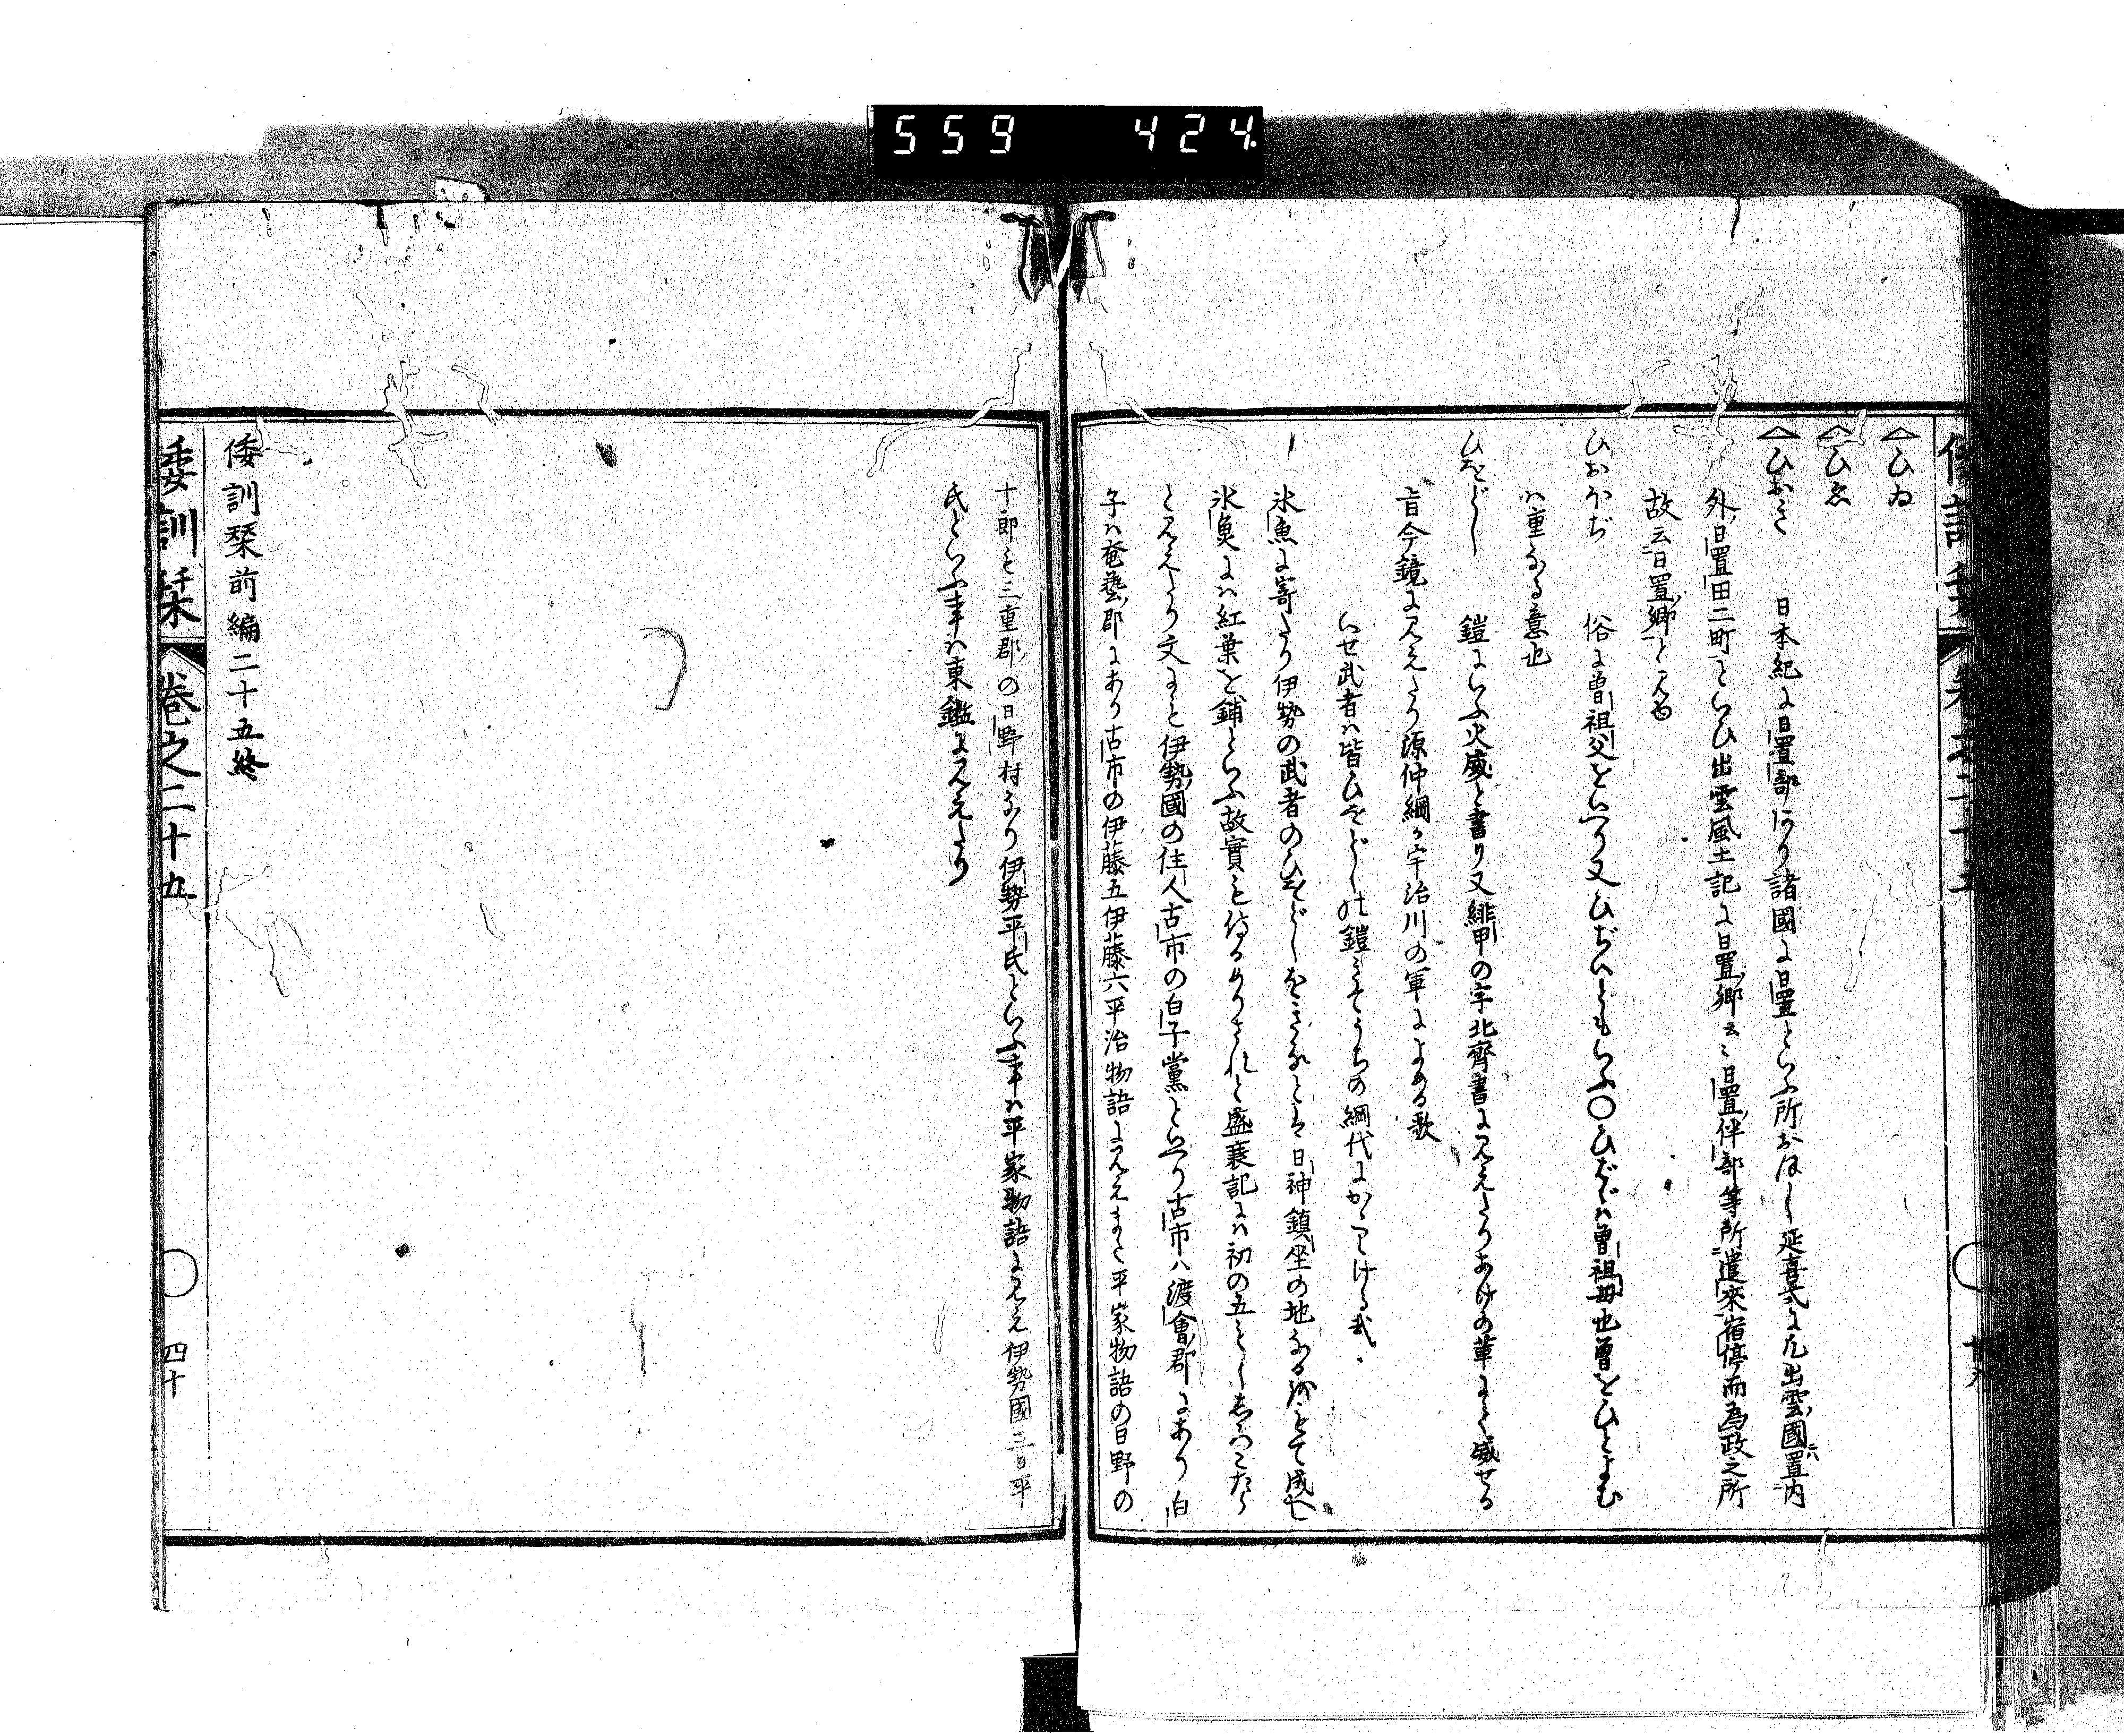 559 424.
ひゐ
ひゑ
ひおき 日本紀に日置部あり諸國に日置といふ所おほし延喜式に凡出雲國置内
外日置田二町といひ出雲風土記に日置郷云々日置伴部等所遣來宿停而為政之所
故云日置郷と見ゆ
ひおほぢ 俗に曽祖父をいへり又ひぢいともいふ〇ひばゞは曽祖母也曽をひとよむ
は重なる意也
ひをどし 鎧にいふ火威と書り又緋甲の字北齊書に見えたりあけの革にて威せる
旨今鏡に見えたり源仲綱か宇治川の軍によめる歌
いせ武者は皆ひをどしの鎧きてうちの網代にかゝりける哉
氷魚に寄たり伊勢の武者のひをどしをきなくは日神鎮坐の地なる
氷魚には紅葉を鋪といふ故實も侍るめりされと盛衰記には初の五もし
とみえたり文にも伊勢國の住人古市の白子黨といへり古市ハ渡會郡にあり白
子は奄藝郡にあり古市の伊藤五伊藤六平治物語に見えまた平家物語の日野の
十郎も三重郡の日野村なり伊勢平氏といふ事は平家物語に見え伊勢國三日平
氏といふ事は東鑑に見えたり
倭訓栞前編二十五終
倭訓栞 巻之二十五 四十